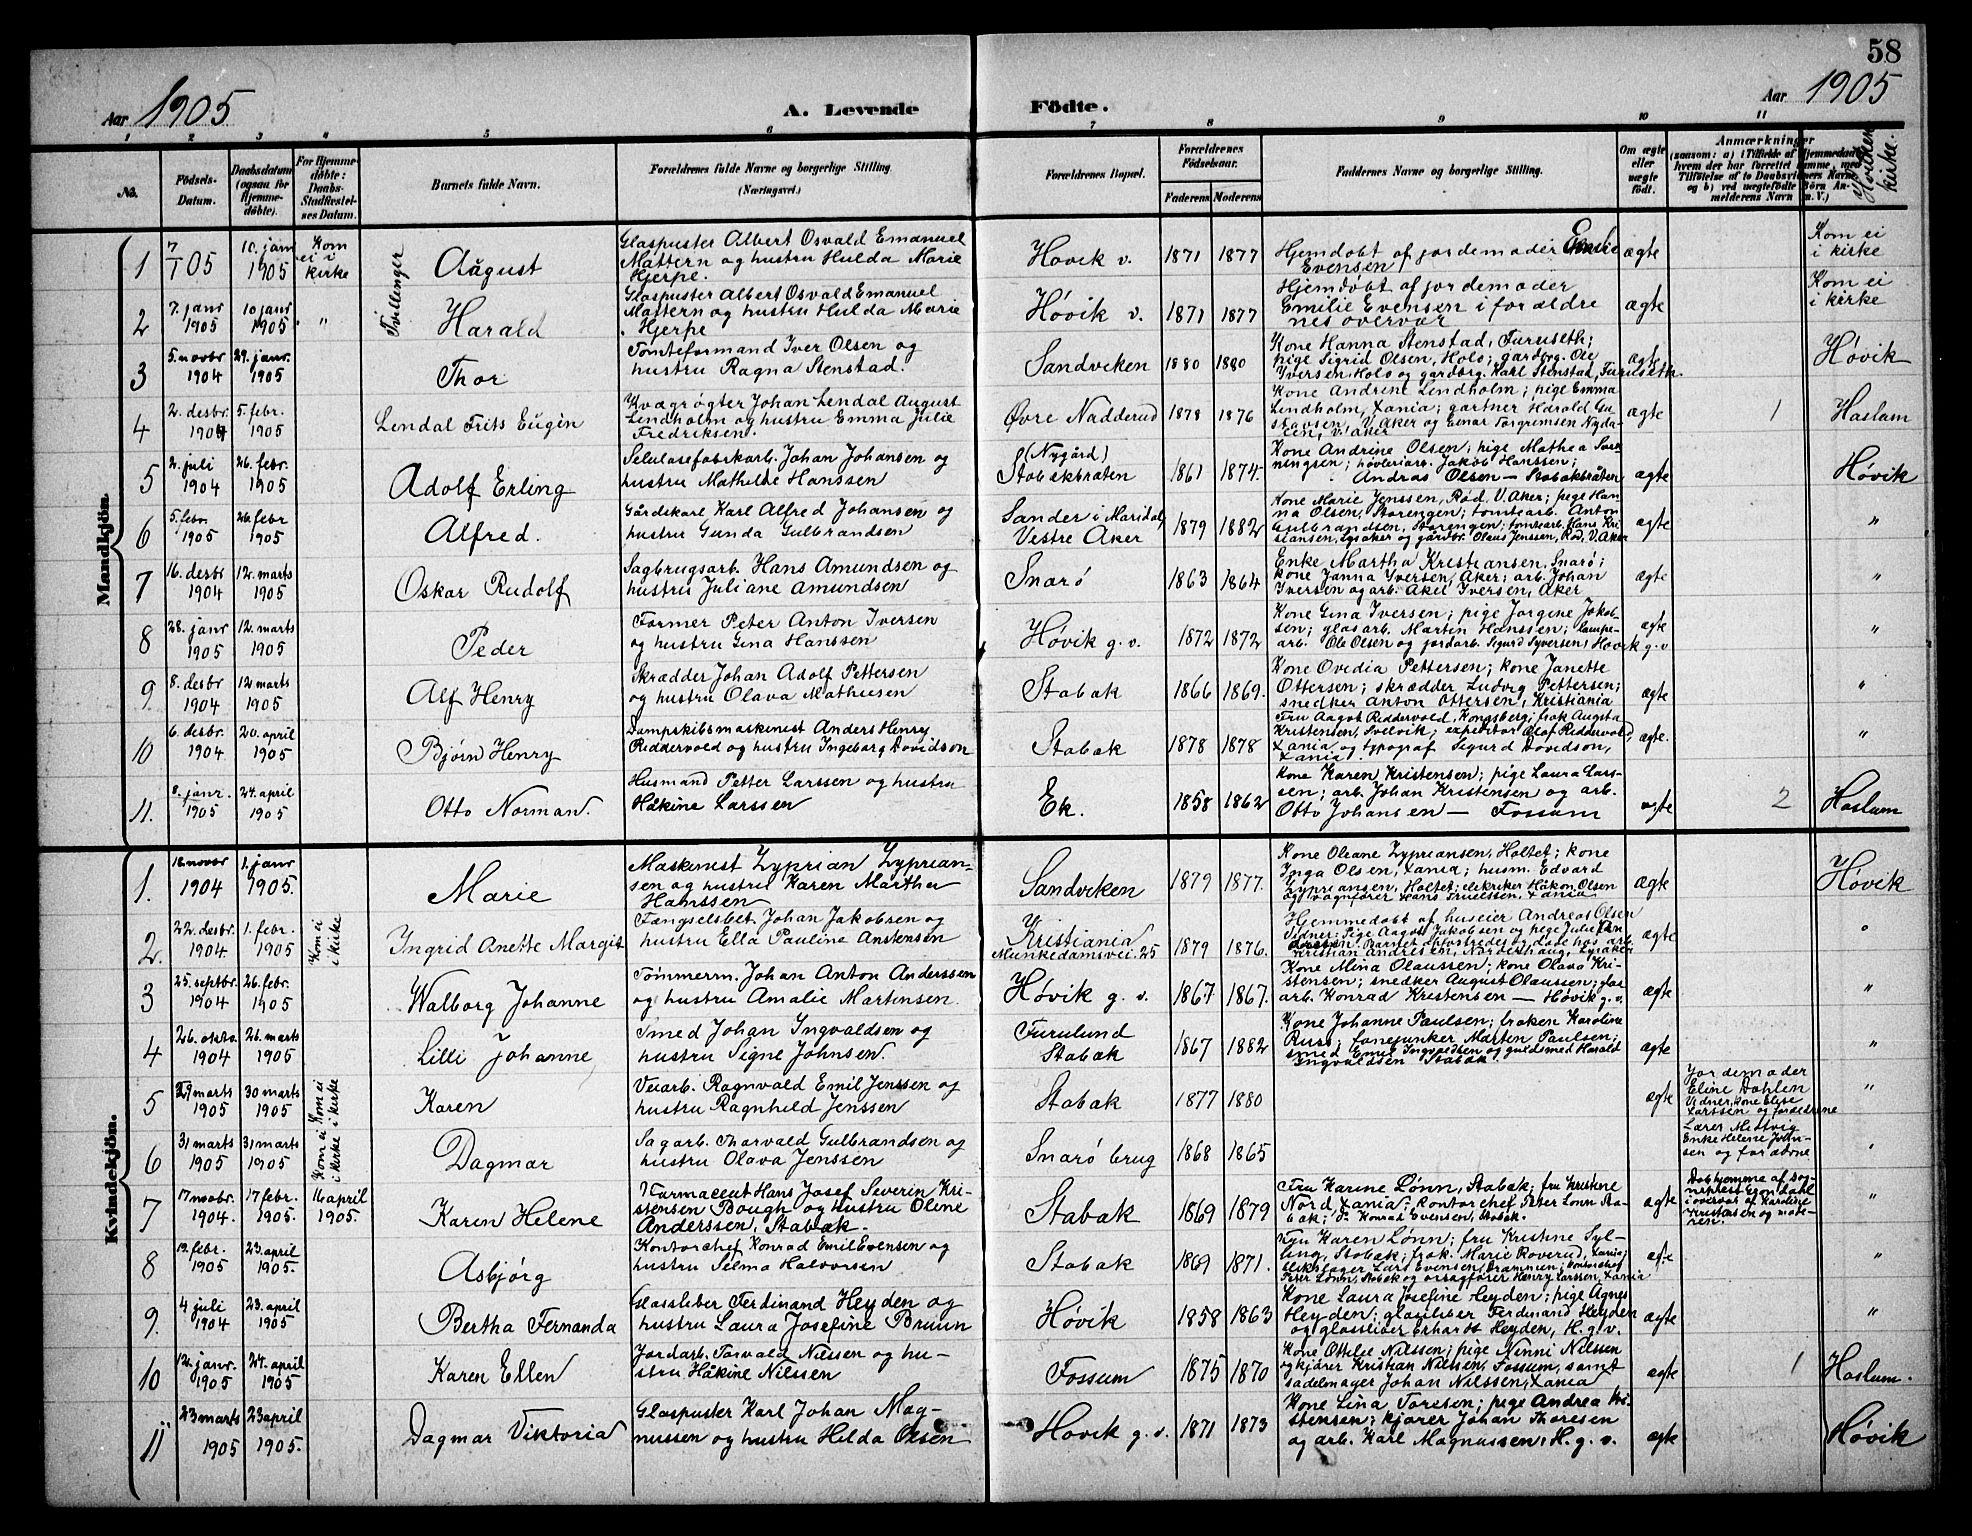 58
Aar 1905
A. Levende
Födte.
Aar 1905
1 2 3 4 5 6 7 8 9 10 11
No.
Födsels-
Datum.
Daabsdatum
(ogsaa for
Hjemme-
døbte).
For Hjemme-
døbte:
Daabs-
Stadfæstel-
ses Datum.
Barnets fulde Navn.
Forældrenes fulde Navne og borgerlige Stilling
(Næringsvei.)
Forældrenes Bopæl.
Forældrenes
Födselsaar.
Faderens
Moderens
Faddernes Navne og borgerlig Stilling.
Om ægte
eller
uægte
født.
Anmærkninger
Hvilken kirke.
Mandkjön.
1
7/1 05
10. janr
1905
Kom
ei i
kirke
Tvillinger
August
Glaspuster Albert Osvald Emanuel
Mattern og hustru Hulda Marie
Hjerpe.
Høvik v.
1871
1877
Hjemdøbt af jordemoder Emilie
Evensen
ægte
Kom ei
i kirke
2
7. janr
1905
10 janr
1905
"
Harald
Glaspuster Albert Osvald Emanuel
Mattern og hustru Hulda Marie
Hjerpe
Høvik v.
1871
1877
Hjemdøbt af jordemoder
Emilie Evensen i foræld­re
nes overvær
ægte
Kom ei
i kirke
3
5. novbr
1904
29. janr.
1905
Thor
Tomteformand Iver Olsen og
hustru Ragna Stenstad.
Sandviken
1880
1880
Kone Hanna Stenstad, Furuseth;
pige Sigrid Olsen, Holo; gardbrg. Ole
Iversen, Holo og gardbrg. Karl Stenstad, Furuseth.
ægte
Høvik
4
2. desbr.
1904
5. febr.
1905
Lendal Frits Eugén
Kvægrøgter Johan Lendal August
Lindholm og hustru Emma Julie
Fredriksen.
Øvre Nadderud
1878
1876
Kone Andrine Lindholm; pige Emma
Lindholm, Xania; gartner Harald Gu
stavsen, V. Aker og Einar Torgrimsen Nyda-
len, V. Aker
ægte
1
Haslum
5
2. juli
1904
26. febr.
1905
Adolf Erling
Selulosefabrikarb. Johan Johansen og
hustru Mathilde Hanssen
(Nygård)
Stabækbråten
1861
1874.
Kone Andrine Olsen; pige Mathea Sve
ningsen; høvleriarb. Jakob Hanssen;
Andras Olsen — Stabækbråten
ægte
Høvik
6
5. febr.
1905
26 febr
1905
Alfred.
Gårdskarl Karl Alfred Johansen og
hustru Gunda Gulbrandsen
Sander i Maridal
Vestre Aker
1879
1882
Kone Marie Jenssen, Rød, V. Aker; pige Han
na Olsen, Storengen; tomtearb. Anton
Gulbrandsen, Storengen; tomtearb. Hans Kri
stiansen, Lysaker og gårdbr. Olaus Jenssen, Rød, V. Aker
ægte
"
7
16. desbr
1904
12. marts
1905
Oskar Rudolf
Sagbrugsarb. Hans Amundsen og
hustru Juliane Amundsen
Snarø
1863
1864
Enke Martha Kristiansen, Snarø;
kone Janna Iversen, Aker; arb. Johan
Iversen og arb. Aksel Iversen, Aker
ægte
"
8
28. janr
1905
12. marts
1905
Peder
Former Peter Anton Iversen
og hustru Gina Hanssen
Høvik g. v.
1872
1872
Kone Gina Iversen; pige Jørgine Jakob-
sen; glasarb. Martin Hanssen; lampe-
arb. Ole Olsen og jordarb. Sigurd Syversen, Høvik g. v
ægte
"
9
8. desbr
1904
12 marts
1905
Alf Henry
Skrædder Johan Adolf Pettersen
og hustru Olava Mathiesen
Stabæk
1866
1869.
Kone Ovidia Pettersen; kone Janette
Ottersen; skrædder Ludvig Pettersen;
snedker Anton Ottersen, Kristiania
ægte
"
10
6. desbr.
1904
20. april
1905
Bjørn Henry
Dampskibsmaskinist Anders Henry
Riddervold og hustru Ingeborg Davidson
Stabæk
1878
1878
Fru Aagot Riddervold, Kongsberg; frøk. Augsta
Kristensen, Svelvik; expeditør Olaf Riddervold,
Xania og typograf Sigurd Davidson,
Xania.
ægte.
"
11.
8. janr.
1905
24. april
1905
Otto Norman.
Husmand Petter Larssen og hustru
Håkine Larssen
Ek.
1858
1862
Kone Karen Kristensen; pige Laura Lars-
sen; arb. Johan Kristensen og arb.
Otto Johansen — Fossum
ægte
2
Haslum
Kvindekjön.
1.
18. novbr
1904
1. janr
1905.
Marie
Maskinist Zyprian Zyprian-
sen og hustru Karen Martha
Hanssen
Sandviken
1879
1877.
Kone Oleane Zypriansen, Holtet; kone
Inga Olsen, Xania; husm. Edvard
Zypriansen, Holtet; elektriker Håkon Olsen
og vognfører Hans Truelssen, Xania
ægte
Høvik
2.
22. desbr.
1904
1. febr.
1905
Kom ei
i kirke
Ingrid Anette Margit
Fængselsbet. Johan Jakobsen og
hustru Ella Pauline Anstensen
Kristiania
Munkedamsvei. 25
1879
1876.
Hjemmedøbt af huseier Andreas Olsen
Vidner: Pige Aagot Jakobsen og pige Julie
Barnet opfostredes og døde hos arb.
Kristian Andresen, Norderhaug, Lysaker
ægte
"
3
25. septbr.
1904
26. febr.
1905
Walborg Johanne
Tømmerm. Johan Anton Anderssen
og hustru Amalie Martinsen.
Høvik g. v.
1867
1867.
Kone Mina Olaussen; kone Olava Kri-
stensen; snedker August Olaussen; glas
arb. Konrad Kristensen — Høvik g. v.
ægte
"
4
26. oktbr.
1904
26. marts
1905
Lilli Johanne
Smed Johan Ingvaldsen og
hustru Signe Johnsen.
Furulund
Stabæk
1867
1882
Kone Johanne Paulsen; frøken Karoline
Russ; fanejunker Marten Paulsen;
smed Emil Ingvaldsen og guldsmed Harald
Ingvaldsen Stabæk
ægte
"
5
29 marts
1905
30 marts
1905
Kom ei
i kirke
Karen
Veiarb. Ragnvald Emil Jenssen og
hustru Ragnhild Jenssen
Stabæk
1877
1880
ægte
Jordemoder
Eline Dahlen
Vidner, kone Elise
Larssen og forældrene
"
6
31. marts
1905
31. marts
1905
Kom ei
i kirke
Dagmar
Sagarb. Thorvald Gulbrandsen og
hustru Olava Jenssen
Snarø brug
1868
1865
Lærer
Enke Helene Johan-
sen og forældrne
"
7
17. novbr.
1904.
17 febr.
1905.
16 april
1905.
Karen Helene
Farmaceut Hans Josef Severin Kri-
stensen Bough og hustru Oline
Anderssen, Stabæk.
Stabæk
1869
1879
Fru Karine Lønn, Stabæk; fru Kristine
Nord Xania; kontorchef Peter Lønn Sta-
bæk; Konrad Evensen, Stabæk.
ægte
Døbt hjemme af Sog-
neprest Egon Dahl
i overvær af Karoline
Kristensen og mode-
ren.
"
8
19. febr.
1905
23. april
1905.
Asbjørg
Kontorchef Konrad Emil Evensen og
hustru Selma Halvorsen
Stabæk
1869
1871.
Fru Karen Lønn; fru Kristine Syl-
ling, Stabæk; frøk. Marie Roverud, Xania;
Lars Evensen, Drammen; kontorchef
Peter Lønn, Stabæk og Henry Larssen, Xania
ægte
"
9.
4 juli
1904
23. april
1905
Bertha Fernanda
Glassliber Ferdinand Heyden og
hustru Laura Josefine Bruun
Høvik
1858
1863
Kone Laura Josefine Heyden; pige Agnes
Heyden; glassliber Ferdinand Heyden
og glassliber Erhardt Heyden, H. g. v.
ægte
"
10
12. janr.
1905
24. april
1905
Karen Ellen
Jordarb. Torvald Nilssen og hu-
stru Håkine Nilssen
Fossum
1875
1870
Kone Ottilie Nilssen; pige Ninni Nilssen
og kjører Kristian Nilssen, Fossum, samt
sadelmager Johan Nilssen, Xania
ægte
1
Haslum.
11
23 marts
1905
23 april
1905.
Dagmar Viktoria
Glaspuster Karl Johan Mag-
nussen og hustru Hilda Olsen
Høvik g. v.
1871
1873
Kone Lina Toresen; pige Andrea Kri-
stensen; kjører Johan Thoresen
og arb. Karl Magnussen, H. g. v.
ægte
Høvik